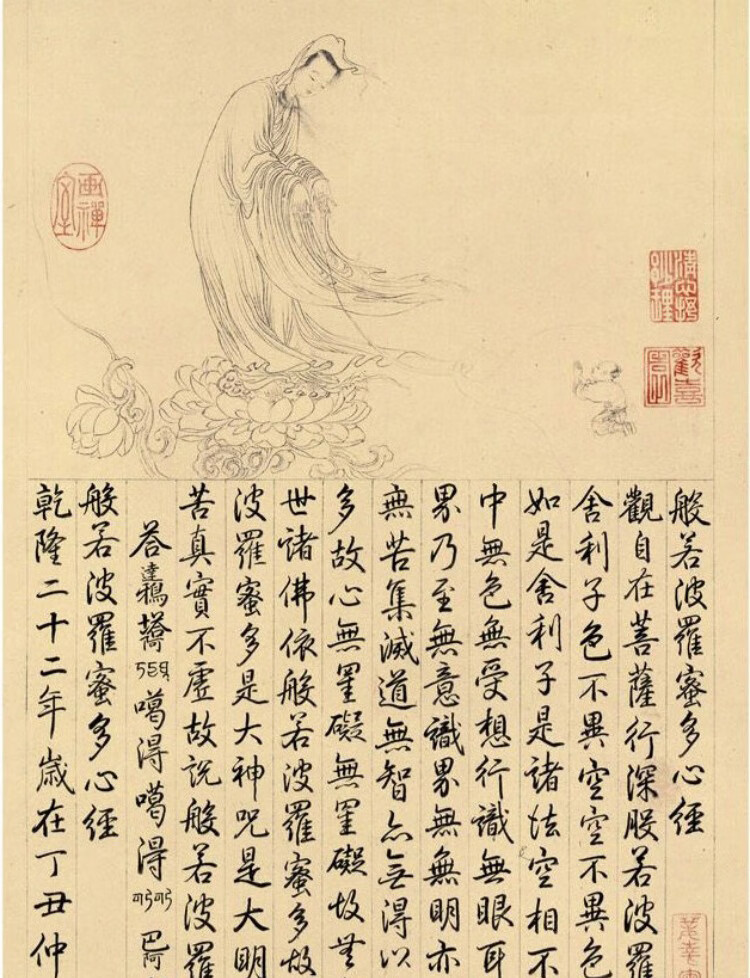 畫禪室
般若波羅蜜多心經
觀自在菩薩行深般若波羅
舍利子色不異空空不異色
如是舍利子是諸法空相不
中無色無受想行識無眼耳
界乃至無意識界無無明亦
無苦集滅道無智亦無得以
多故心無罣礙無罣礙故無
世諸佛依般若波羅蜜多故
波羅蜜多是大神咒是大明
苦真實不虛故說般若波羅
答達鴉噶得噶得巴阿
般若波羅蜜多心經
乾隆二十二年歲在丁丑仲